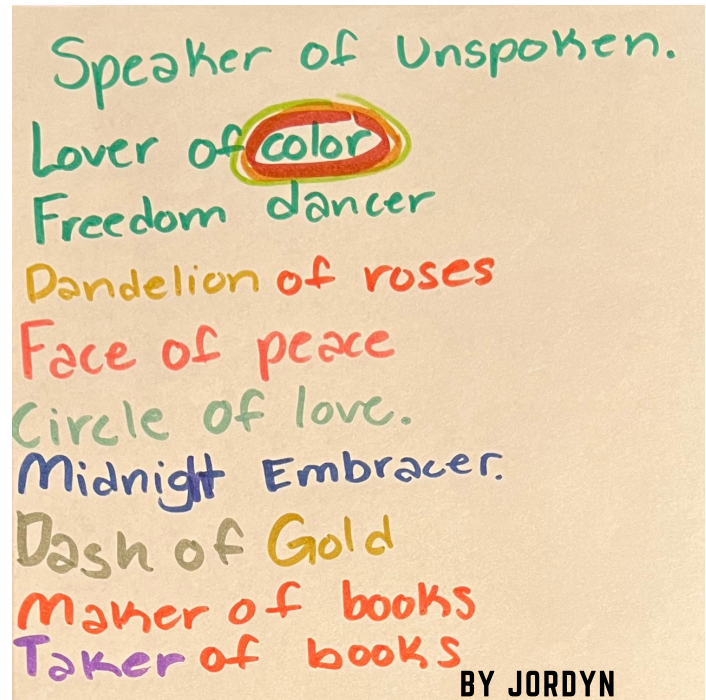 Speaker of Unspoken.
Lover of color
Freedom dancer
Dandelion of roses
Face of peace
Circle of love.
Midnight Embracer.
Dash of Gold
Maker of books
Taker of books
BY JORDYN